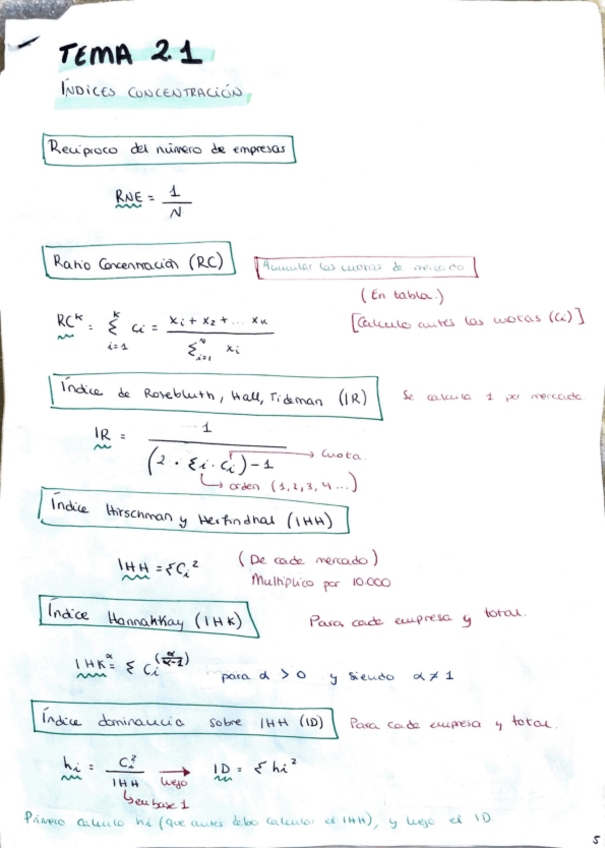 TEMA 2.1
ÍNDICES CONCENTRACIÓN
Recíproco del número de empresas
RNE = 1 / N
Ratio Concentración (RC)
Acumular las cuotas de mercado
(En tabla.)
[Calculo antes las cuotas (Ci)]
RC^K = Σ_{i=1}^{K} Ci = (Xi + X2 + ... Xk) / (Σ_{i=1}^{N} Xi)
Índice de Rosebluth, Hall, Tideman (IR)
Se calcula 1 por mercado.
IR = 1 / ((2 · Σi · Ci) - 1)
→ cuota.
↳ orden (1,2,3,4...)
Índice Hirschman y Herfindhal (IHH)
IHH = ΣCi²
(De cada mercado)
Multiplico por 10.000
Índice HannahKay (IHK)
Para cada empresa y total.
IHK^α = Σ Ci^(α/α-1)
para α > 0 y siendo α ≠ 1
Índice dominancia sobre IHH (ID)
Para cada empresa y total.
hi = Ci² / IHH → luego ID = Σ hi²
↳ en base 1
Primero calculo hi (que antes debo calcular el IHH), y luego el ID
5